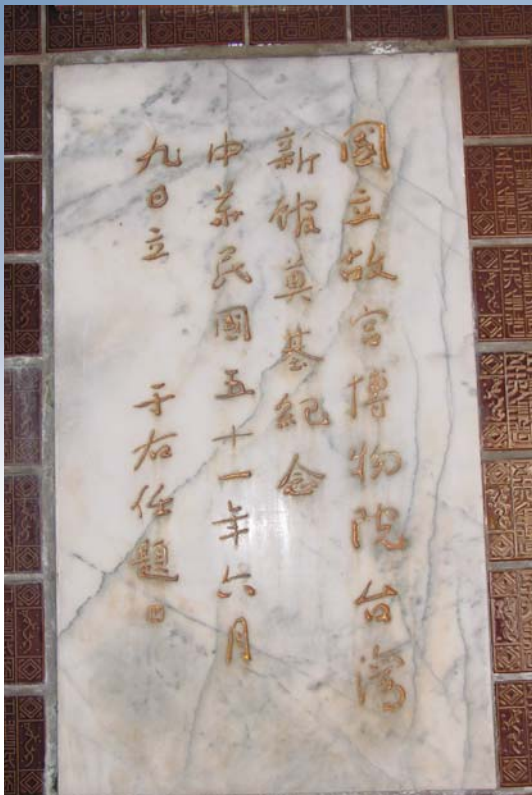 國立故宮博物院台灣
新館奠基紀念
中華民國五十一年六月
九日立 于右任題